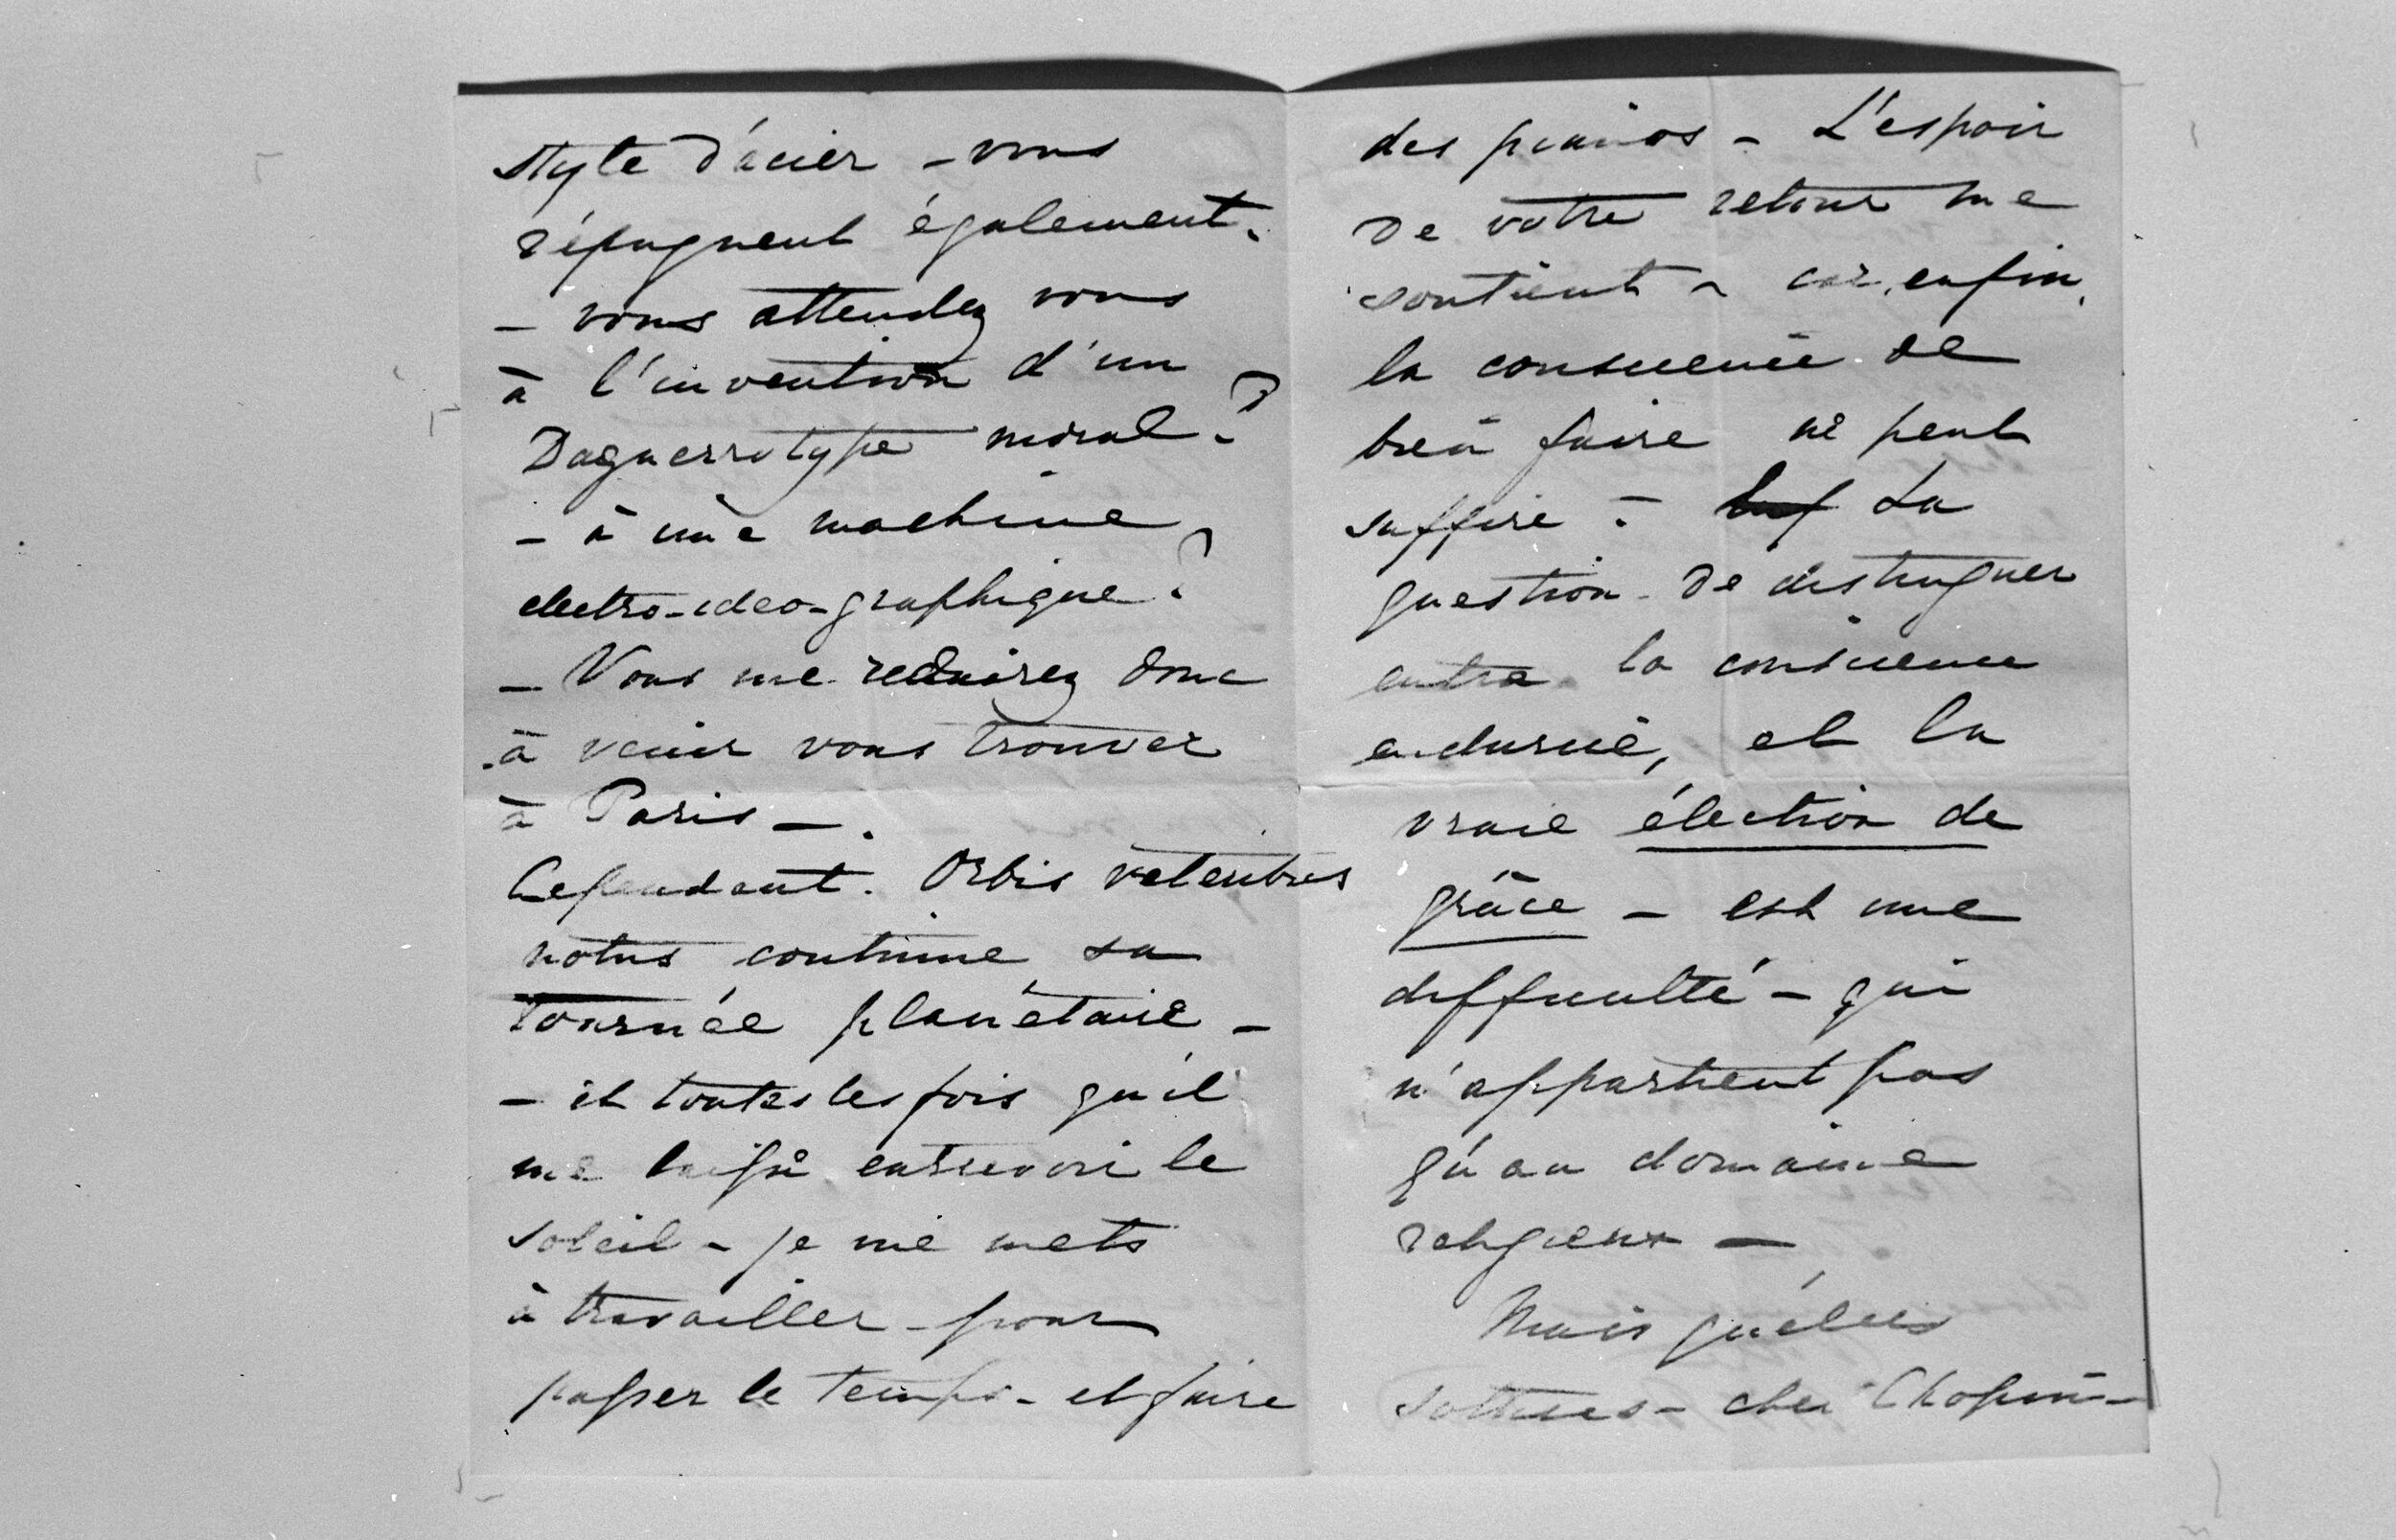 style d'acier – vous
répugnent également.
– vous attendez vous
à l'invention d'un
Daguerrotype moral ?
– à une machine
electro-ideo-graphique ?
– Vous me reduirez donc
à venir vous trouver
à Paris – .
Cependant. Orbis veteribus
notus continue sa
tournée planétaire –
– et toutes les fois qu'il
me laisse entrevoir le
soleil – je me mets
à travailler – pour
passer le temps – et faire
des pianos – L'espoir
de votre retour me
soutient – car, enfin,
la conscience de
bien faire ne peut
suffire – La
question de distinguer
entre la conscience
endurcie, et la
vraie élection de
grâce – est une
difficulté – qui
n'appartient pas
qu'au domaine
religieux –
Mais quelles
sottises – cher Chopin –